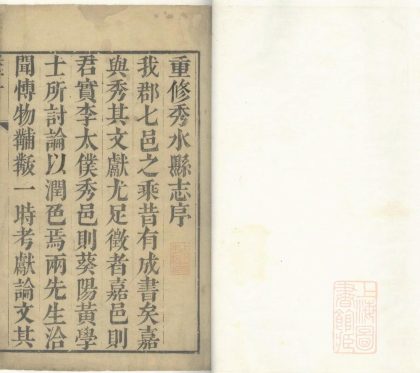 重修秀水縣志序
我郡七邑之乘昔有成書矣嘉
與秀其文獻尤足徵者嘉邑則
君實李太僕秀邑則葵陽黃學
士所討論以潤色焉兩先生洽
聞博物黼黻一時考獻論文其
上海圖書館藏